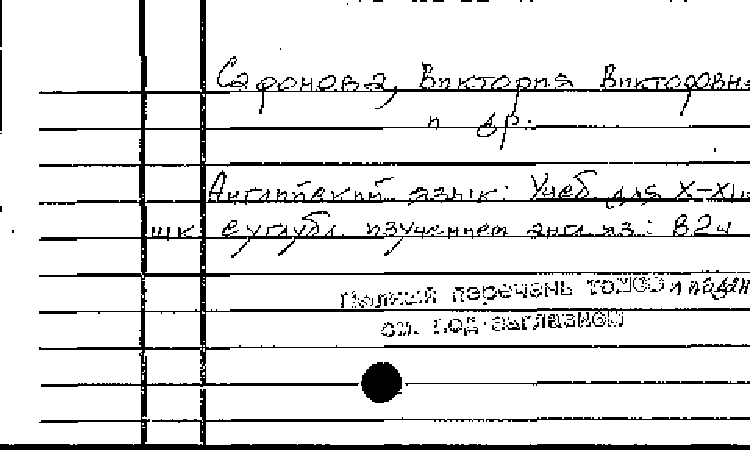 Сафонова, Виктория Викторовна
и др.
Английский язык: Учеб для X-XI
шк с углубл. изучением англ яз.: В 2ч
Полный перечень томов и издан
см. под заглавной